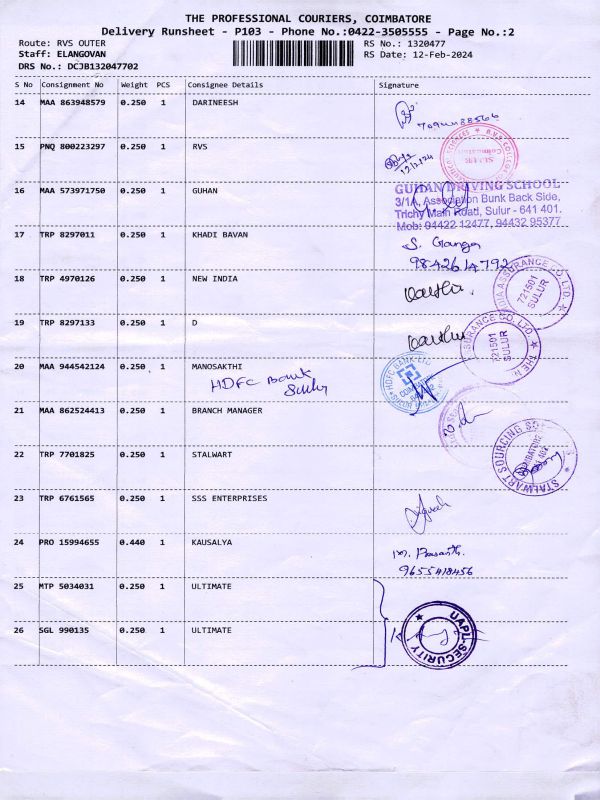 THE PROFESSIONAL COURIERS, COIMBATORE
Delivery Runsheet - P103 - Phone No.:0422-3505555 - Page No.:2
Route: RVS OUTER RS No.: 1320477
Staff: ELANGOVAN RS Date: 12-Feb-2024
DRS No.: DCJB132047702
S No Consignment No Weight PCS Consignee Details Signature
14 MAA 863948579 0.250 1 DARINEESH
15 PNQ 800223297 0.250 1 RVS
SULUR
16 MAA 573971750 0.250 1 GUHAN
GUHAN DRIVING SCHOOL
3/1A, Association Bunk Back Side,
Trichy Main Road, Sulur - 641 401.
Mob: 94422 12477, 94432 95377
17 TRP 8297011 0.250 1 KHADI BAVAN
S. Ganga
9842614792
18 TRP 4970126 0.250 1 NEW INDIA
ASSURANCE CO. LTD.
721501
SULUR
19 TRP 8297133 0.250 1 D
SURANCE CO. LTD. ★ THE
721501
SULUR
20 MAA 944542124 0.250 1 MANOSAKTHI
HDFC Bank
Sulur
HDFC BANK LTD
21 MAA 862524413 0.250 1 BRANCH MANAGER
22 TRP 7701825 0.250 1 STALWART
STALWART SOURCING
23 TRP 6761565 0.250 1 SSS ENTERPRISES
24 PRO 15994655 0.440 1 KAUSALYA
M. Prasanth.
9655418456
25 MTP 5034031 0.250 1 ULTIMATE
26 SGL 990135 0.250 1 ULTIMATE
UAPL-SECURITY